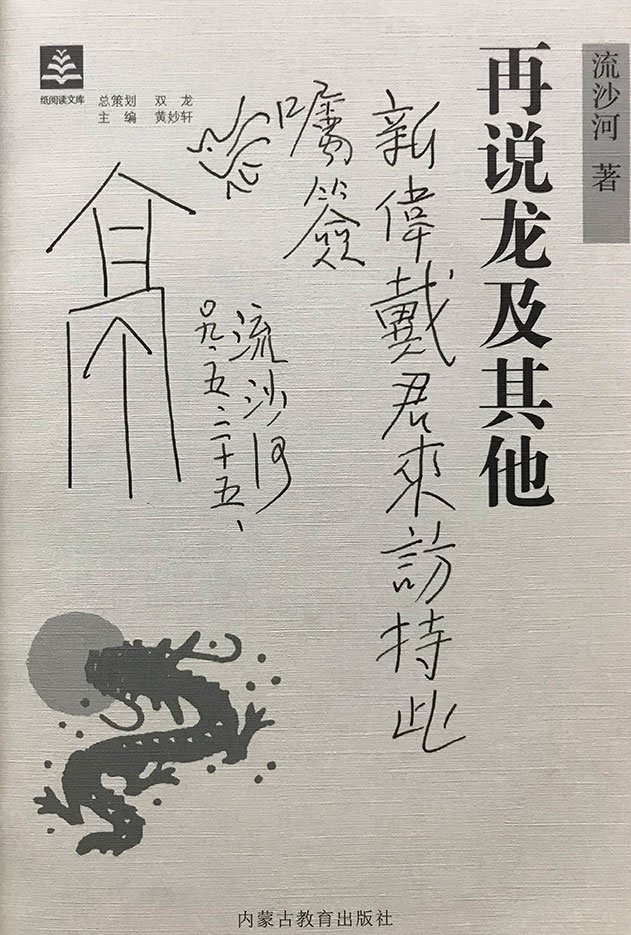 流沙河 著
再说龙及其他
纸阅读文库
总策划 双 龙
主 编 黄妙轩
新偉戴君來訪持此
囑簽
流沙河
〇九.五.二十五、
内蒙古教育出版社